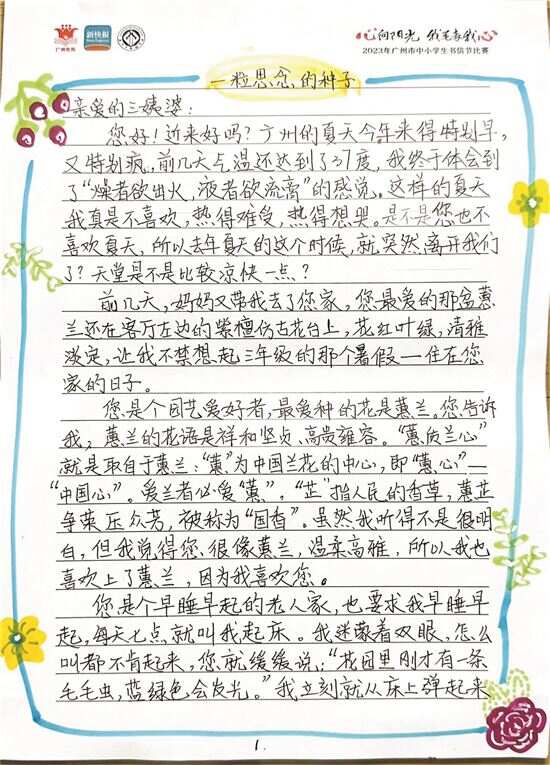 广州教育
新快报
心向阳光 我毛寄我心
2023年广州市中小学生书信节比赛
一粒思念的种子
亲爱的三姨婆：
您好！近来好吗？广州的夏天今年来得特别早，
又特别疯，前几天气温还达到了37度，我终于体会到
了“燥者欲出火，液者欲流膏”的感觉。这样的夏天
我真是不喜欢，热得难受，热得想哭。是不是您也不
喜欢夏天，所以去年夏天的这个时候，就突然离开我们
了？天堂是不是比较凉快一点？
前几天，妈妈又带我去了您家，您最爱的那盆蕙
兰还在客厅左边的紫檀仿古花台上，花红叶绿，清雅
淡定，让我不禁想起三年级的那个暑假一住在您
家的日子。
您是个园艺爱好者，最爱种的花是蕙兰。您告诉
我，蕙兰的花语是祥和坚贞、高贵雍容。“蕙质兰心”
就是取自于蕙兰：“蕙”为中国兰花的中心，即“蕙心”—
“中国心”。爱兰者必爱“蕙”。“芷”指人民的香草，蕙芷
争荣压众芳，被称为“国香”。虽然我听得不是很明
白，但我觉得您很像蕙兰，温柔高雅，所以我也
喜欢上了蕙兰，因为我喜欢您。
您是个早睡早起的老人家，也要求我早睡早
起，每天七点就叫我起床。我迷蒙着双眼，怎么
叫都不肯起来，您就缓缓说：“花园里刚才有一条
毛毛虫，蓝绿色会发光。”我立刻就从床上弹起来
1.